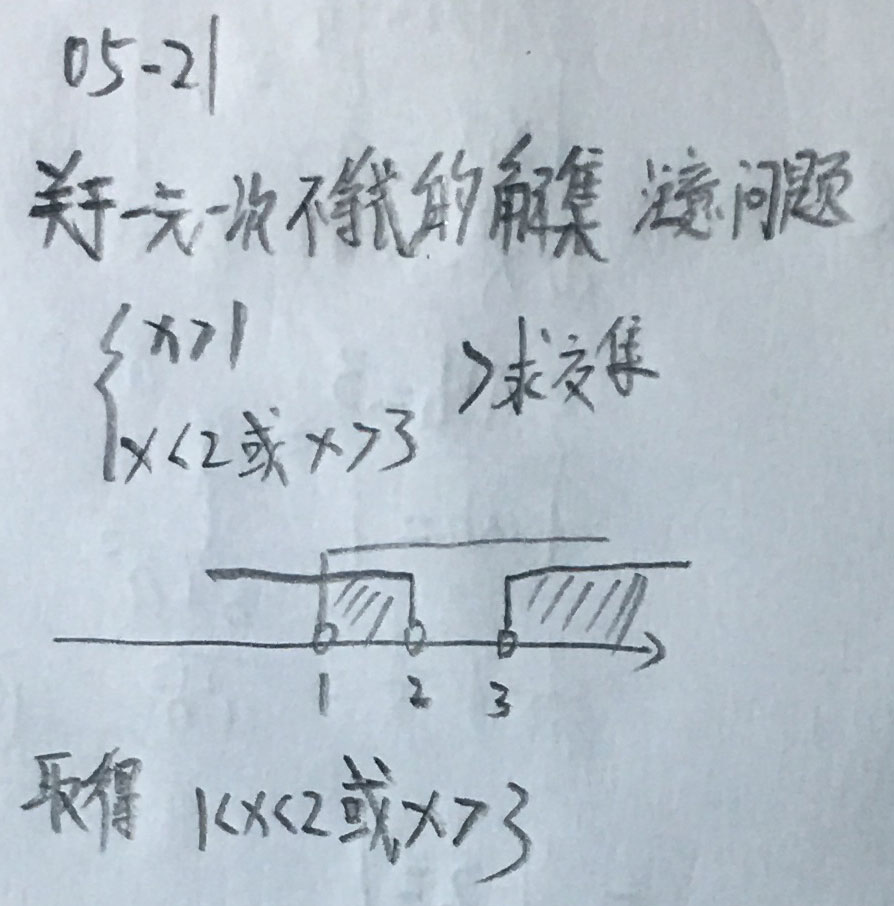 05-21
关于一元一次不等式的解集 注意问题
{ x>1
x<2或x>3 >求交集
1 2 3
取得 1<x<2或x>3